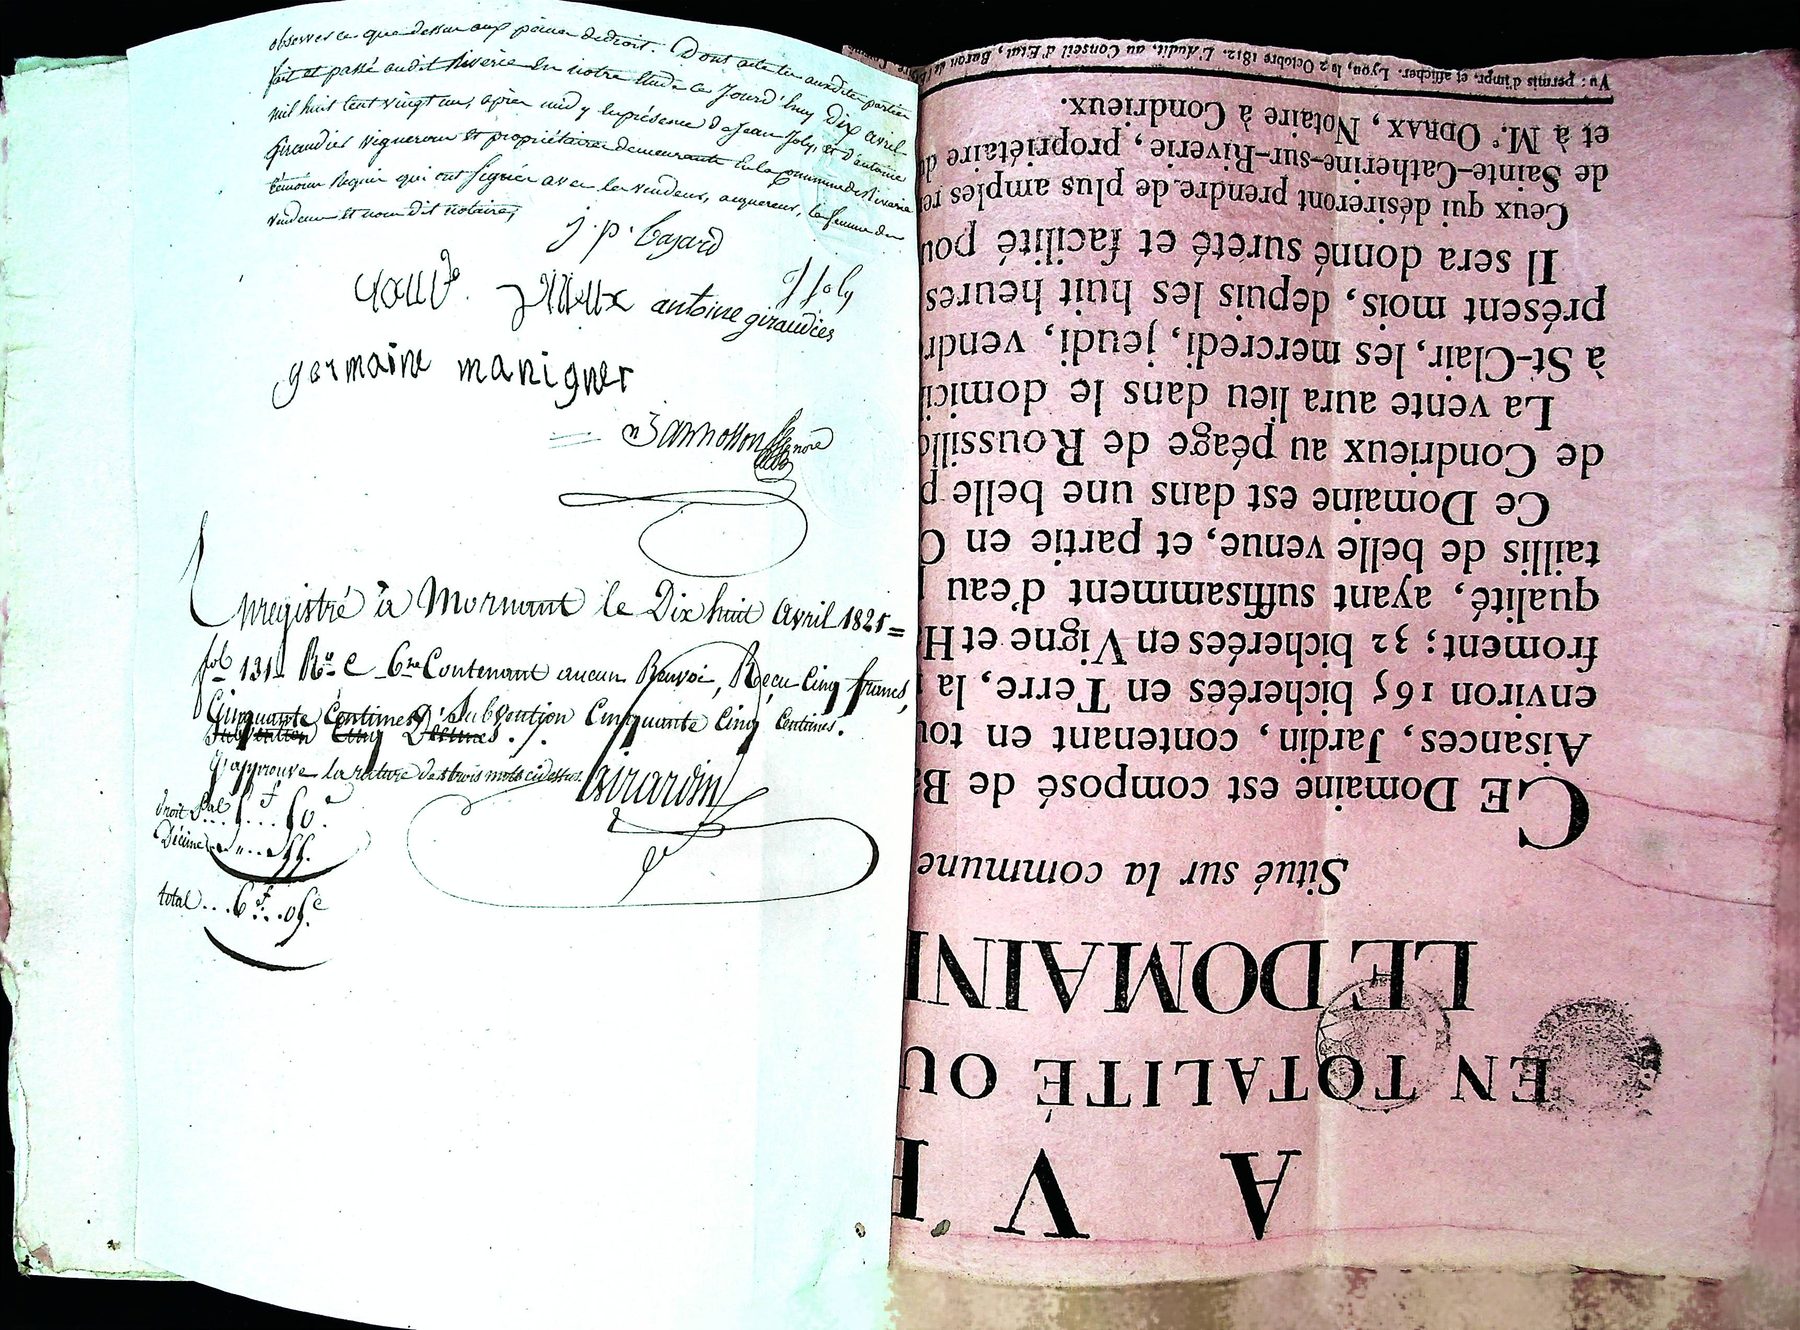 observer ce que dessus aux peines de droit. Dont acte lu auxdites parties
fait et passé audit Riverie en notre Etude ce Jourd'huy Dix avril
mil huit cent vingt un, après midy en présence de Jean Joly, et d'antoine
Giraudier vigneron et propriétaires demeurants en la commune de Riverie
témoins Requis qui ont signé avec les vendeur, acquereur, la femme du
vendeur et nous dit notaire,
j. p. Bajard
J Joly
antoine giraudier
germaine manigner
Enregistré à Mornant le Dix huit Avril 1821 =
fol 131 Ro C Contenant aucun Renvoi, Reçu Cinq francs,
Cinquante Centimes, Subvention Cinquante Cinq Centimes.
Subvention Cinq Decimes
J'approuve la rature des trois mots ci dessus
Girardin
droit Pal 5f 50c
Décime 55
total 6f 05c
A VE
EN TOTALITÉ OU
LE DOMAINE
Situé sur la commune
CE Domaine est composé de Ba
Aisances, Jardin, contenant en tou
environ 165 bicherées en Terre, la
froment; 32 bicherées en Vigne et H
qualité, ayant suffisamment d'eau
taillis de belle venue, et partie en
Ce Domaine est dans une belle p
de Condrieux au péage de Roussillo
La vente aura lieu dans le domici
à St-Clair, les mercredi, jeudi, vendr
présent mois, depuis les huit heures
Il sera donné sureté et facilité pou
Ceux qui désireront prendre de plus amples re
de Sainte-Catherine-sur-Riverie, propriétaire du
et à Me. ODRAX, Notaire à Condrieux.
Vu : permis d'impr. et afficher. Lyon, le 2 Octobre 1812. L'Audit. au Conseil d'Etat, Baron de l'Empire